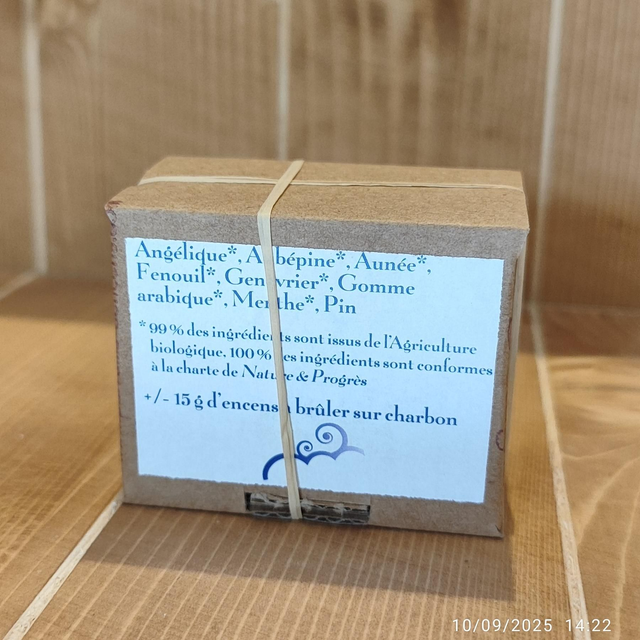 Angélique*, Aubépine*, Aunée*,
Fenouil*, Genévrier*, Gomme
arabique*, Menthe*, Pin
* 99 % des ingrédients sont issus de l'Agriculture
biologique, 100 % des ingrédients sont conformes
à la charte de Nature & Progrès
+/- 15 g d'encens à brûler sur charbon
10/09/2025 14:22